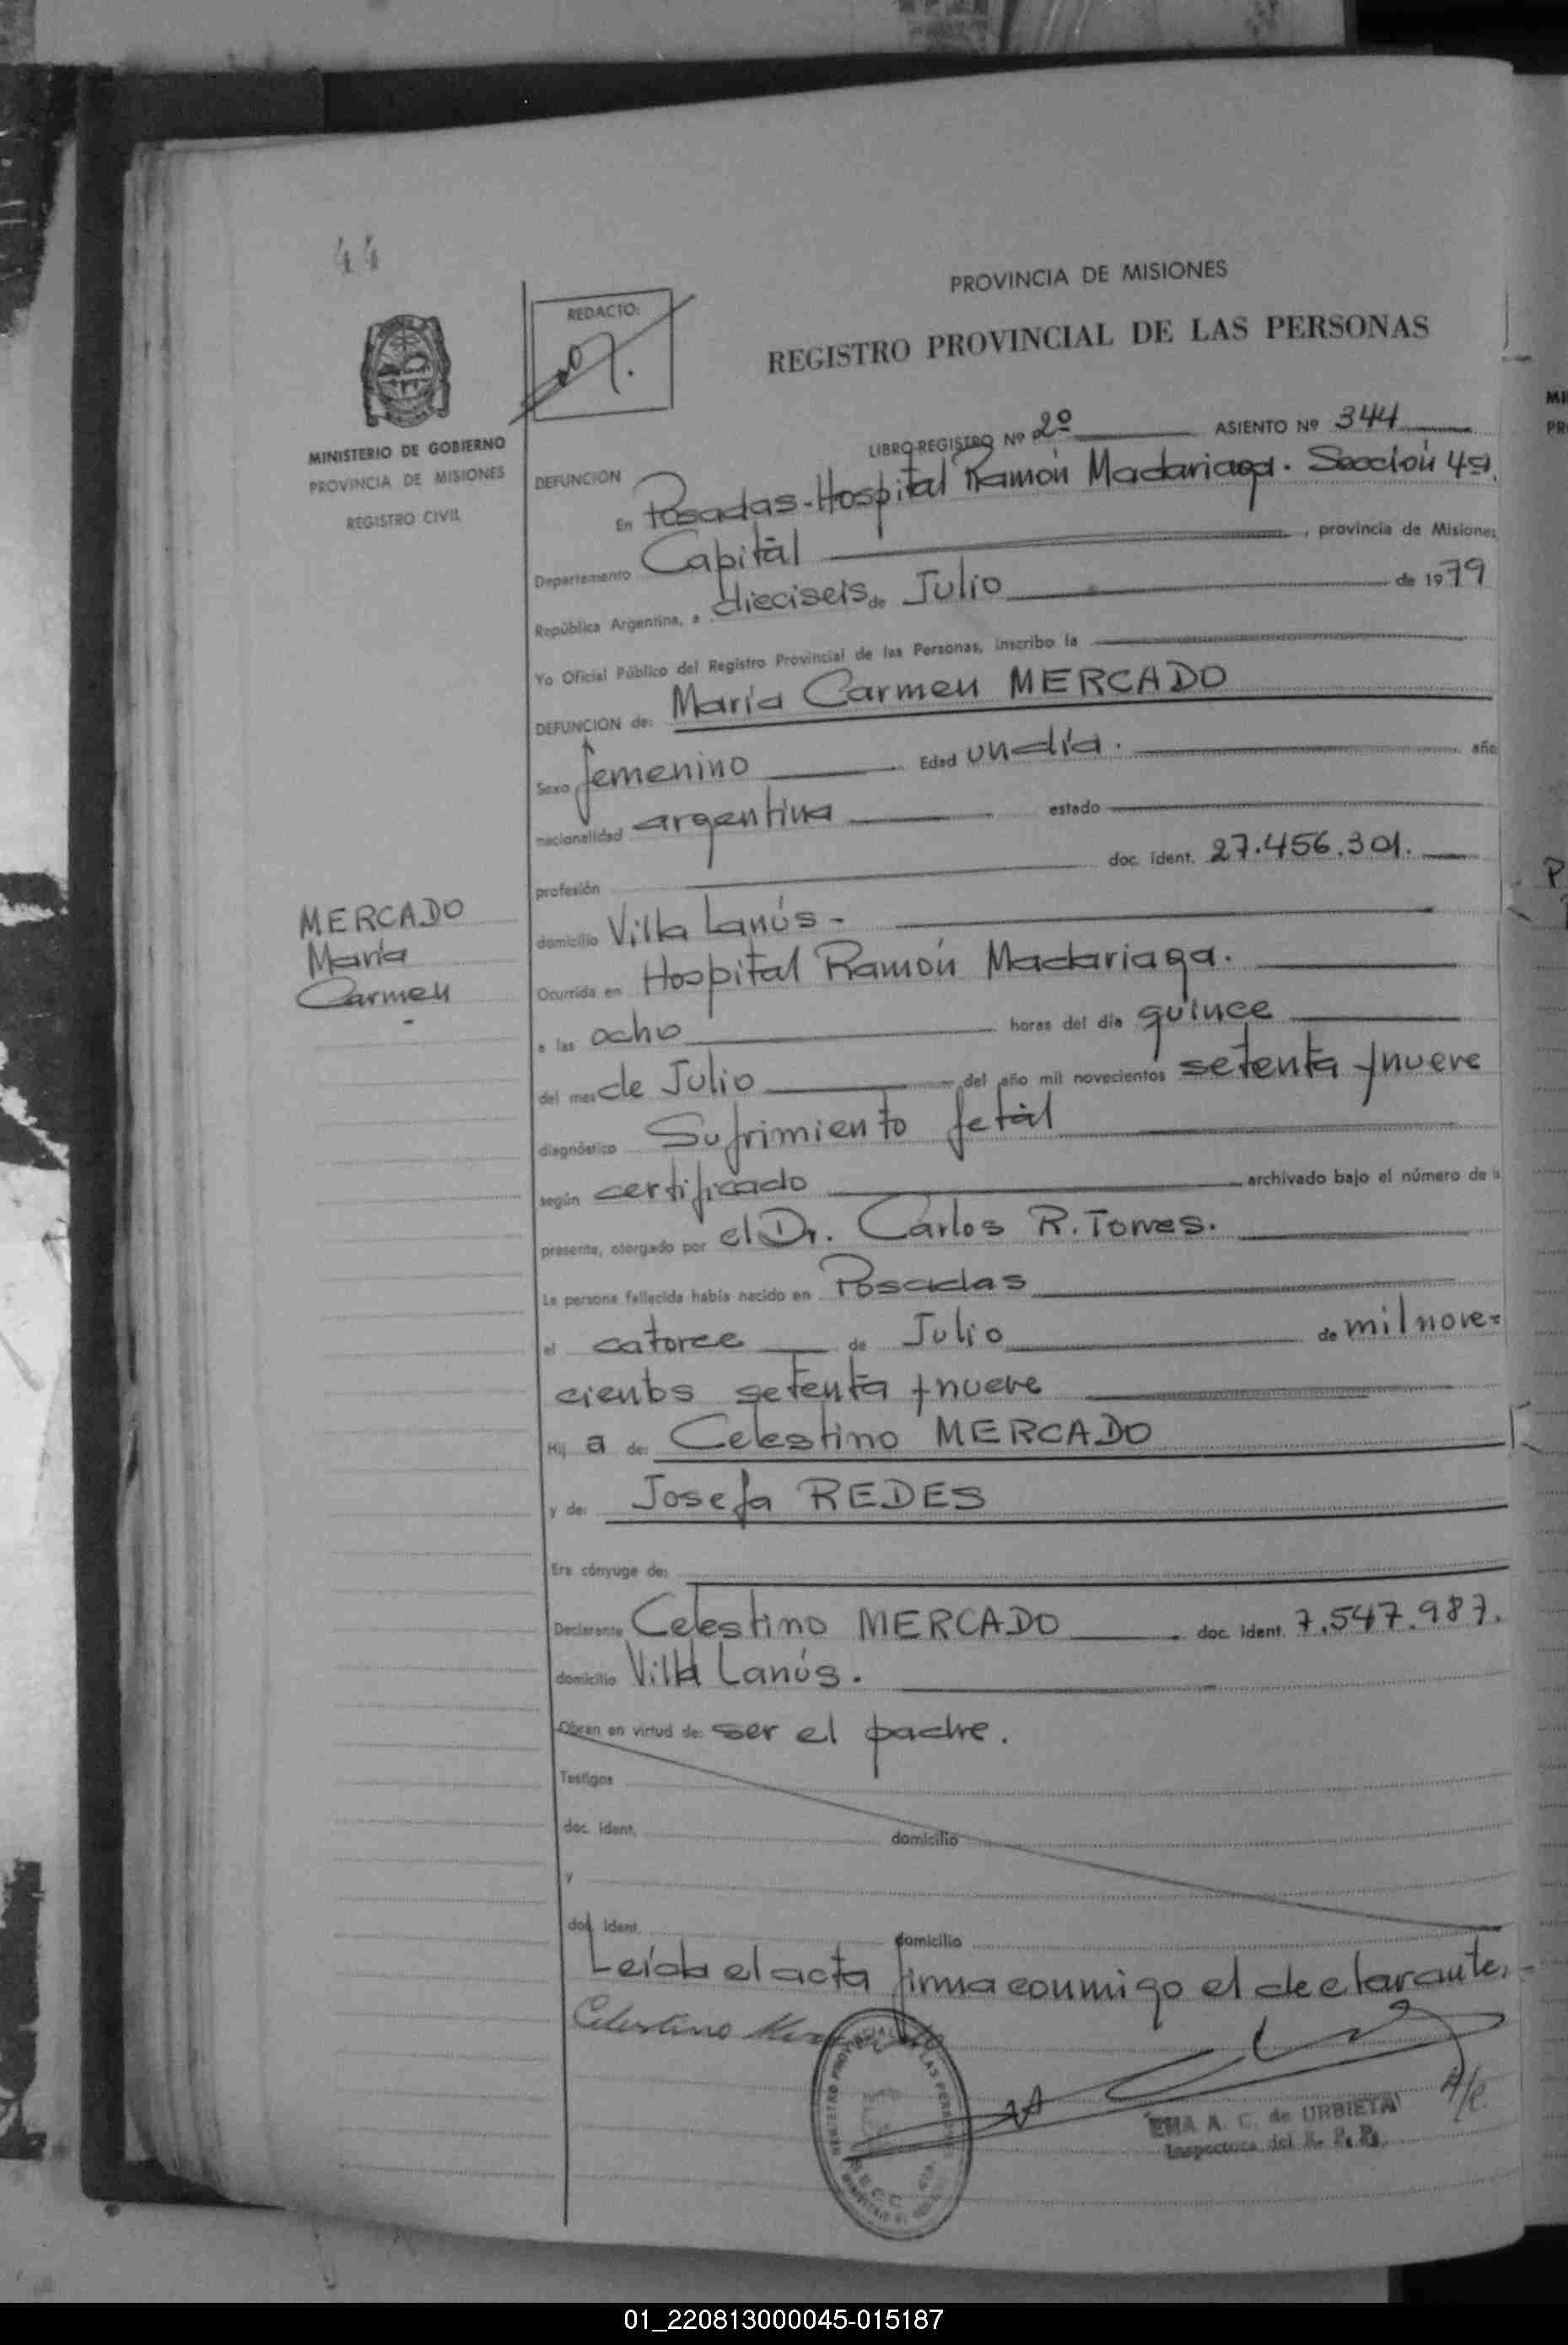 44
PROVINCIA DE MISIONES
REGISTRO PROVINCIAL DE LAS PERSONAS
REDACTO:
MINISTERIO DE GOBIERNO
PROVINCIA DE MISIONES
REGISTRO CIVIL
LIBRO-REGISTRO Nº 2º ASIENTO Nº 344
DEFUNCION
En Posadas-Hospital Ramón Madariaga. Sección 4a.
Departamento Capital, provincia de Misiones
República Argentina, a dieciseis de Julio de 1979
Yo Oficial Público del Registro Provincial de las Personas, inscribo la
DEFUNCION de: María Carmen MERCADO
Sexo femenino Edad un día. año
nacionalidad argentina estado
profesión doc. ident. 27.456.301.
MERCADO
María
Carmen
domicilio Villa Lanús-
Ocurrida en Hospital Ramón Madariaga.
a las ocho horas del día quince
del mes de Julio del año mil novecientos setenta y nueve
diagnóstico Sufrimiento fetal
según certificado archivado bajo el número de la
presente, otorgado por el Dr. Carlos R. Torres.
La persona fallecida había nacido en Posadas
el catorce de Julio de mil nove=
cientos setenta y nueve
Hij a de: Celestino MERCADO
y de: Josefa REDES
Era cónyuge de:
Declarante Celestino MERCADO doc. ident. 7.547.987.
domicilio Villa Lanús.
Obran en virtud de: ser el padre.
Testigos
doc. ident. domicilio
y
doc. ident. domicilio
Leída el acta firma conmigo el declarante.-
Celestino Mercado
REGISTRO PROVINCIAL DE LAS PERSONAS
EMA A. C. de URBIETA
Inspectora del R. P. P.
01_220813000045-015187